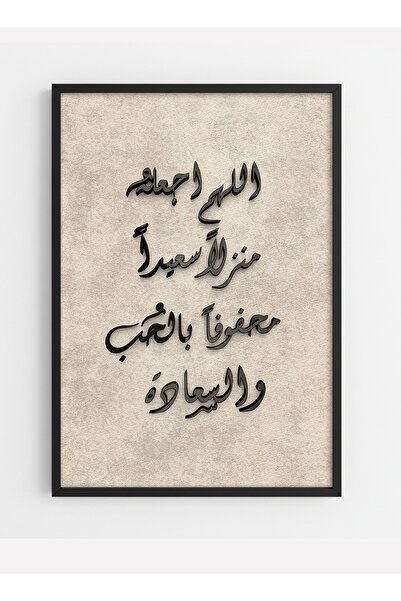 اللهم اجعله
منزلاً سعيداً
محفوفاً بالحُب
والسعادة